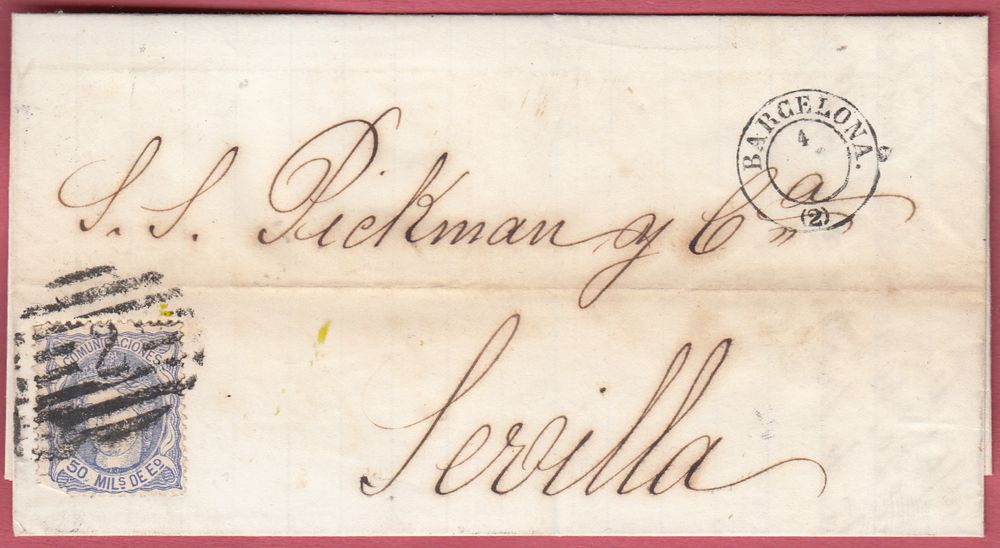 BARCELONA.
4
(2)
S. S. Pickman y Cª
Sevilla
2
COMUNICACIONES
50 MILS DE Eº